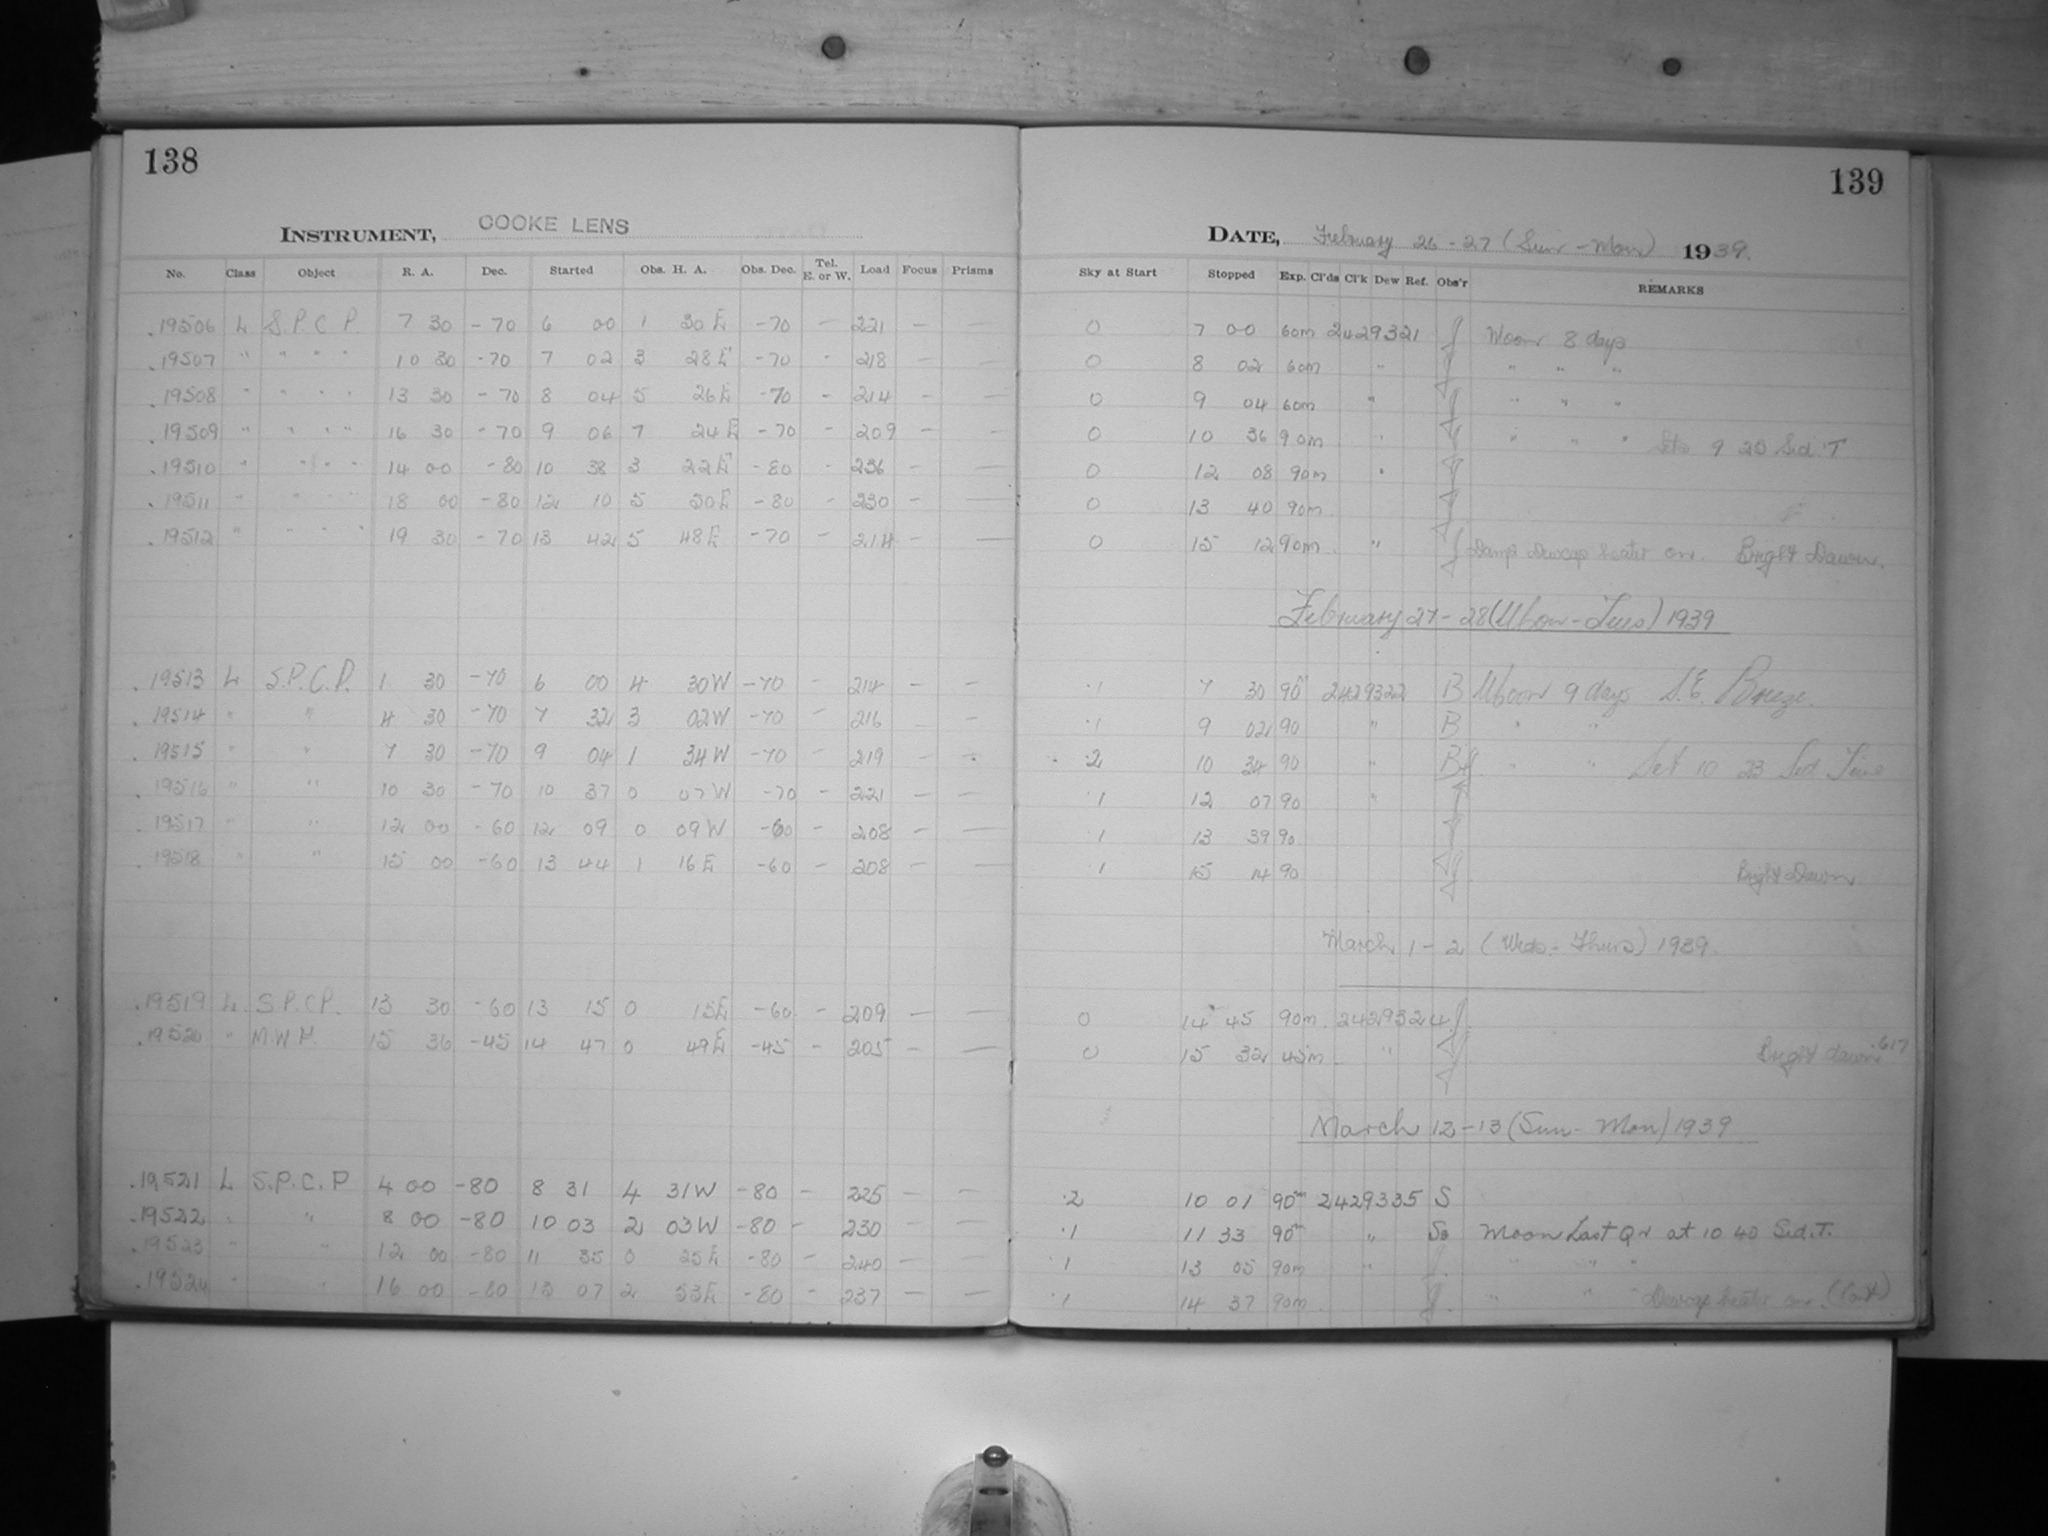 138
INSTRUMENT, COOKE LENS
No. Class Object R. A. Dec. Started Obs. H. A. Obs. Dec. Tel. E. or W. Load Focus Prisms
.19506 L S.P.C.P. 7 30 -70 6 00 1 30 E -70 — 221 — —
.19507 " " " " 10 30 -70 7 02 3 28 E -70 - 218 — —
.19508 " " " " 13 30 -70 8 04 5 26 E -70 - 214 — —
.19509 " " " " 16 30 -70 9 06 7 24 E -70 - 209 — —
.19510 " " " " 14 00 -80 10 38 3 22 E -80 - 236 — —
.19511 " " " " 18 00 -80 12 10 5 50 E -80 - 230 — —
.19512 " " " " 19 30 -70 13 42 5 48 E -70 — 214 — —
.19513 L S.P.C.P. 1 30 -70 6 00 4 30 W -70 - 214 — —
.19514 " " 4 30 -70 7 32 3 02 W -70 - 216 — —
.19515 " " 7 30 -70 9 04 1 34 W -70 - 219 — —
.19516 " " 10 30 -70 10 37 0 07 W -70 - 221 — —
.19517 " " 12 00 -60 12 09 0 09 W -60 - 208 — —
.19518 " " 15 00 -60 13 44 1 16 E -60 - 208 — —
.19519 L S.P.C.P. 13 30 -60 13 15 0 15 E -60 - 209 — —
.19520 " M.W.P. 15 36 -45 14 47 0 49 E -45 - 205 — —
.19521 L S.P.C.P 4 00 -80 8 31 4 31 W -80 - 225 — —
.19522 " " 8 00 -80 10 03 2 03 W -80 - 230 — —
.19523 " " 12 00 -80 11 35 0 25 E -80 - 240 — —
.19524 " " 16 00 -80 13 07 2 53 E -80 - 237 — —
139
DATE, February 26-27 (Sun-Mon) 1939.
Sky at Start Stopped Exp. Cl'ds Cl'k Dew Ref. Obs'r REMARKS
0 7 00 60m 2429321 Moon 8 days
0 8 02 60m " " " "
0 9 04 60m " " " "
0 10 36 90m " " " " Sets 9 25 Sid. T
0 12 08 90m "
0 13 40 90m
0 15 12 90m " Damp Dewcap heater on. Bright Dawn.
February 27-28 (Mon-Tues) 1939
.1 7 30 90m 2429322 B Moon 9 days S.E. Breeze.
.1 9 02 90 " B " "
.2 10 34 90 " " " Set 10 23 Sid Time
.1 12 07 90 "
.1 13 39 90
.1 15 14 90 Bright Dawn
March 1-2 (Weds.-Thurs) 1939.
0 14 45 90m. 2429324
0 15 32 45m. " Bright dawn .617
March 12-13 (Sun-Mon) 1939
.2 10 01 90m 2429335 S
.1 11 33 90m " Moon Last Qr at 10 40 Sid.T.
.1 13 05 90m " " " "
.1 14 37 90m. " " Dewcap heater on.